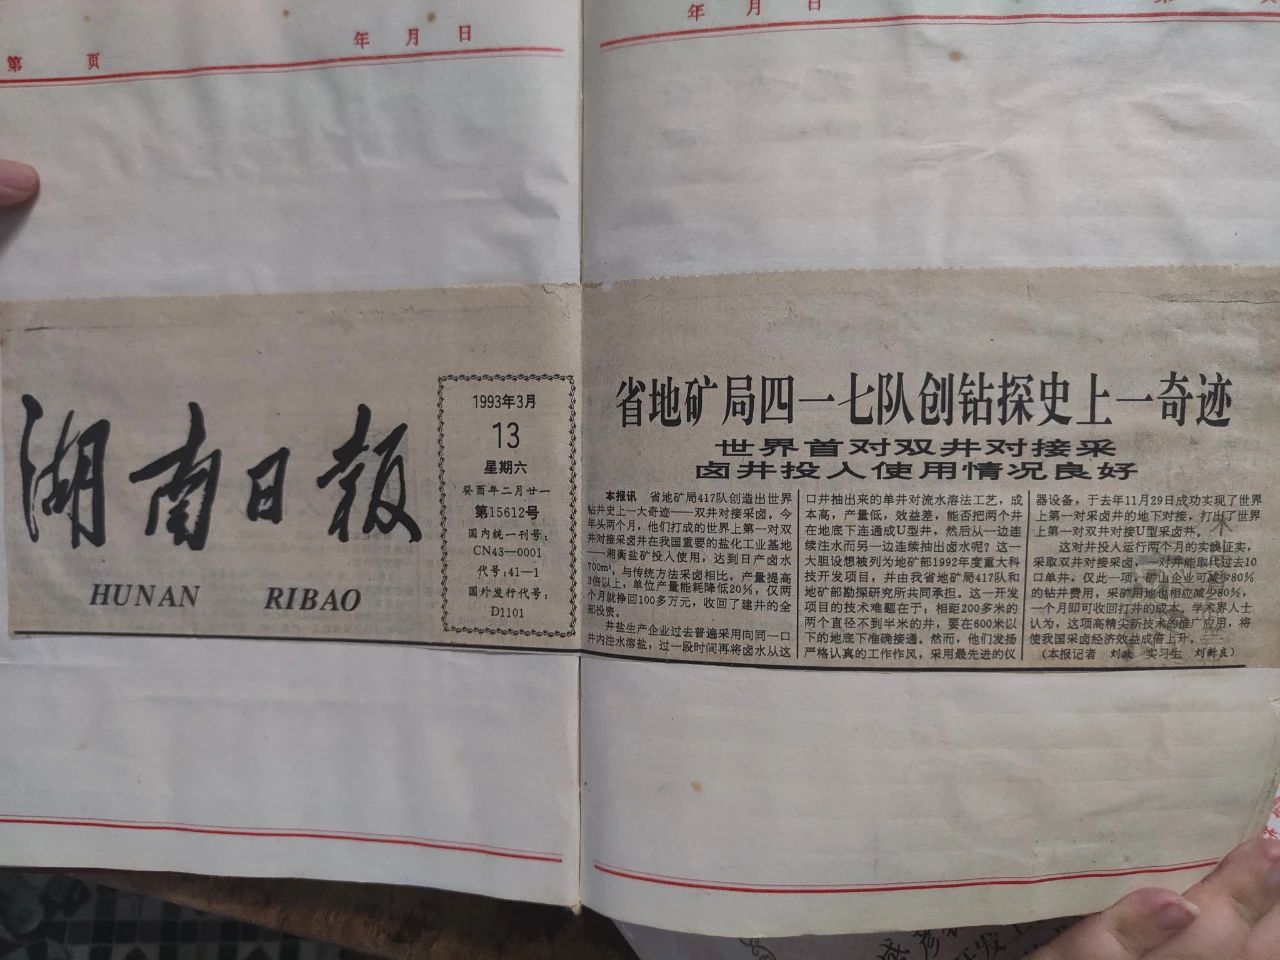 第 页
年 月 日
年 月 日
湖南日报
HUNAN RIBAO
1993年3月
13
星期六
癸酉年二月廿一
第15612号
国内统一刊号：
CN43—0001
代号：41—1
国外发行代号：
D1101
省地矿局四一七队创钻探史上一奇迹
世界首对双井对接采
卤井投入使用情况良好
本报讯 省地矿局417队创造出世界
钻井史上一大奇迹——双井对接采卤。今
年头两个月，他们打成的世界上第一对双
井对接采卤井在我国重要的盐化工业基地
——湘衡盐矿投入使用，达到日产卤水
700m³，与传统方法采卤相比，产量提高
3倍以上，单位产量能耗降低20%，仅两
个月就挣回100多万元，收回了建井的全
部投资。
井盐生产企业过去普遍采用向同一口
井内注水溶盐，过一段时间再将卤水从这
口井抽出来的单井对流水溶法工艺，成
本高，产量低，效益差，能否把两个井
在地底下连通成U型井，然后从一边连
续注水而另一边连续抽出卤水呢？这一
大胆设想被列为地矿部1992年度重大科
技开发项目，并由我省地矿局417队和
地矿部勘探研究所共同承担。这一开发
项目的技术难题在于；相距200多米的
两个直径不到半米的井，要在600米以
下的地底下准确接通。然而，他们发扬
严格认真的工作作风，采用最先进的仪
器设备，于去年11月29日成功实现了世界
上第一对采卤井的地下对接，打出了世界
上第一对双井对接U型采卤井。
这对井投入运行两个月的实践证实，
采取双井对接采卤，一对井能取代过去10
口单井，仅此一项，矿山企业可减少80%
的钻井费用，采矿用地也相应减少80%，
一个月即可收回打井的成本。学术界人士
认为，这项高精尖新技术的推广应用，将
使我国采卤经济效益成倍上升。
（本报记者 刘 实习生 刘新良）